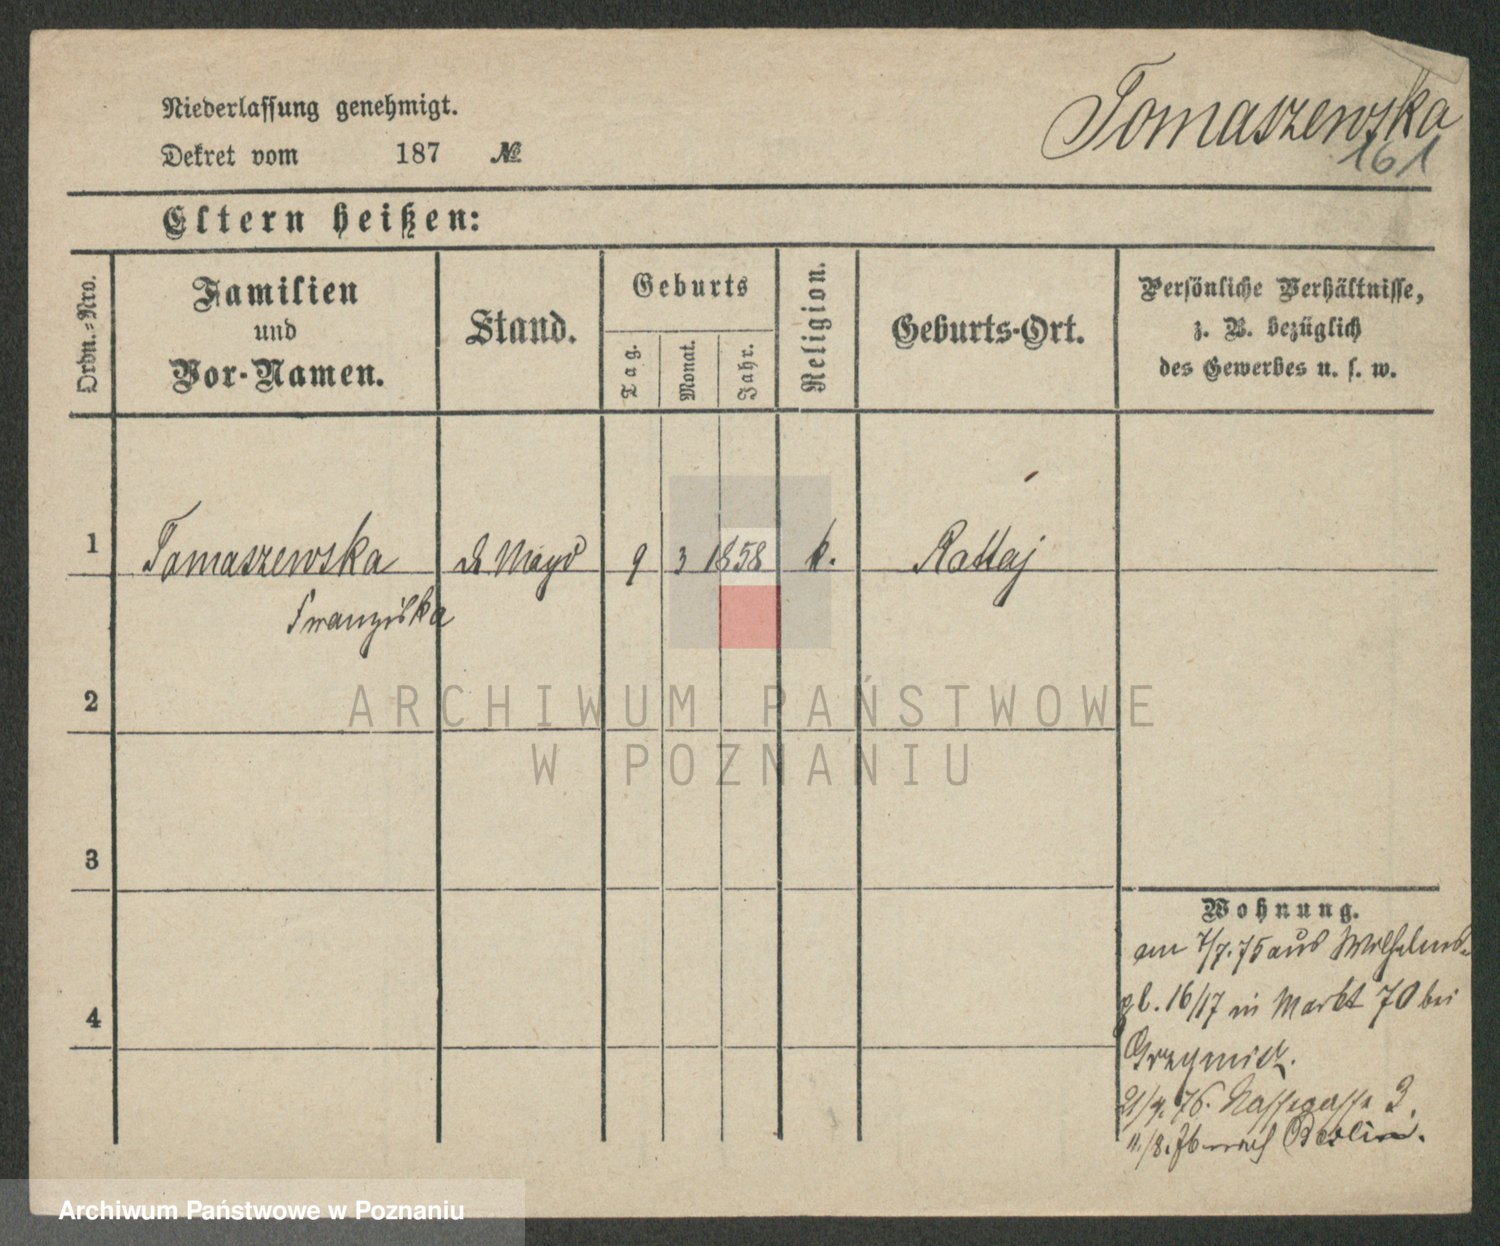 Niederlassung genehmigt.
Dekret vom 187 №
Tomaszewska
161
Eltern heißen:
Ordn.-Nro.
Familien
und
Vor-Namen.
Stand.
Geburts
Tag.
Monat.
Jahr.
Religion.
Geburts-Ort.
Persönliche Verhältnisse,
z. B. bezüglich
des Gewerbes u. s. w.
1 Tomaszewska 9 3 1858 k. Rattaj
Franziska
2
3
4
Wohnung.
am 7/7.75 aus Wilhelms-
pl. 16/17 in Markt 70 bei
21/4.76. Nassegasse 3.
11./8.76 nach Berlin.
ARCHIWUM PAŃSTWOWE
W POZNANIU
Archiwum Państwowe w Poznaniu